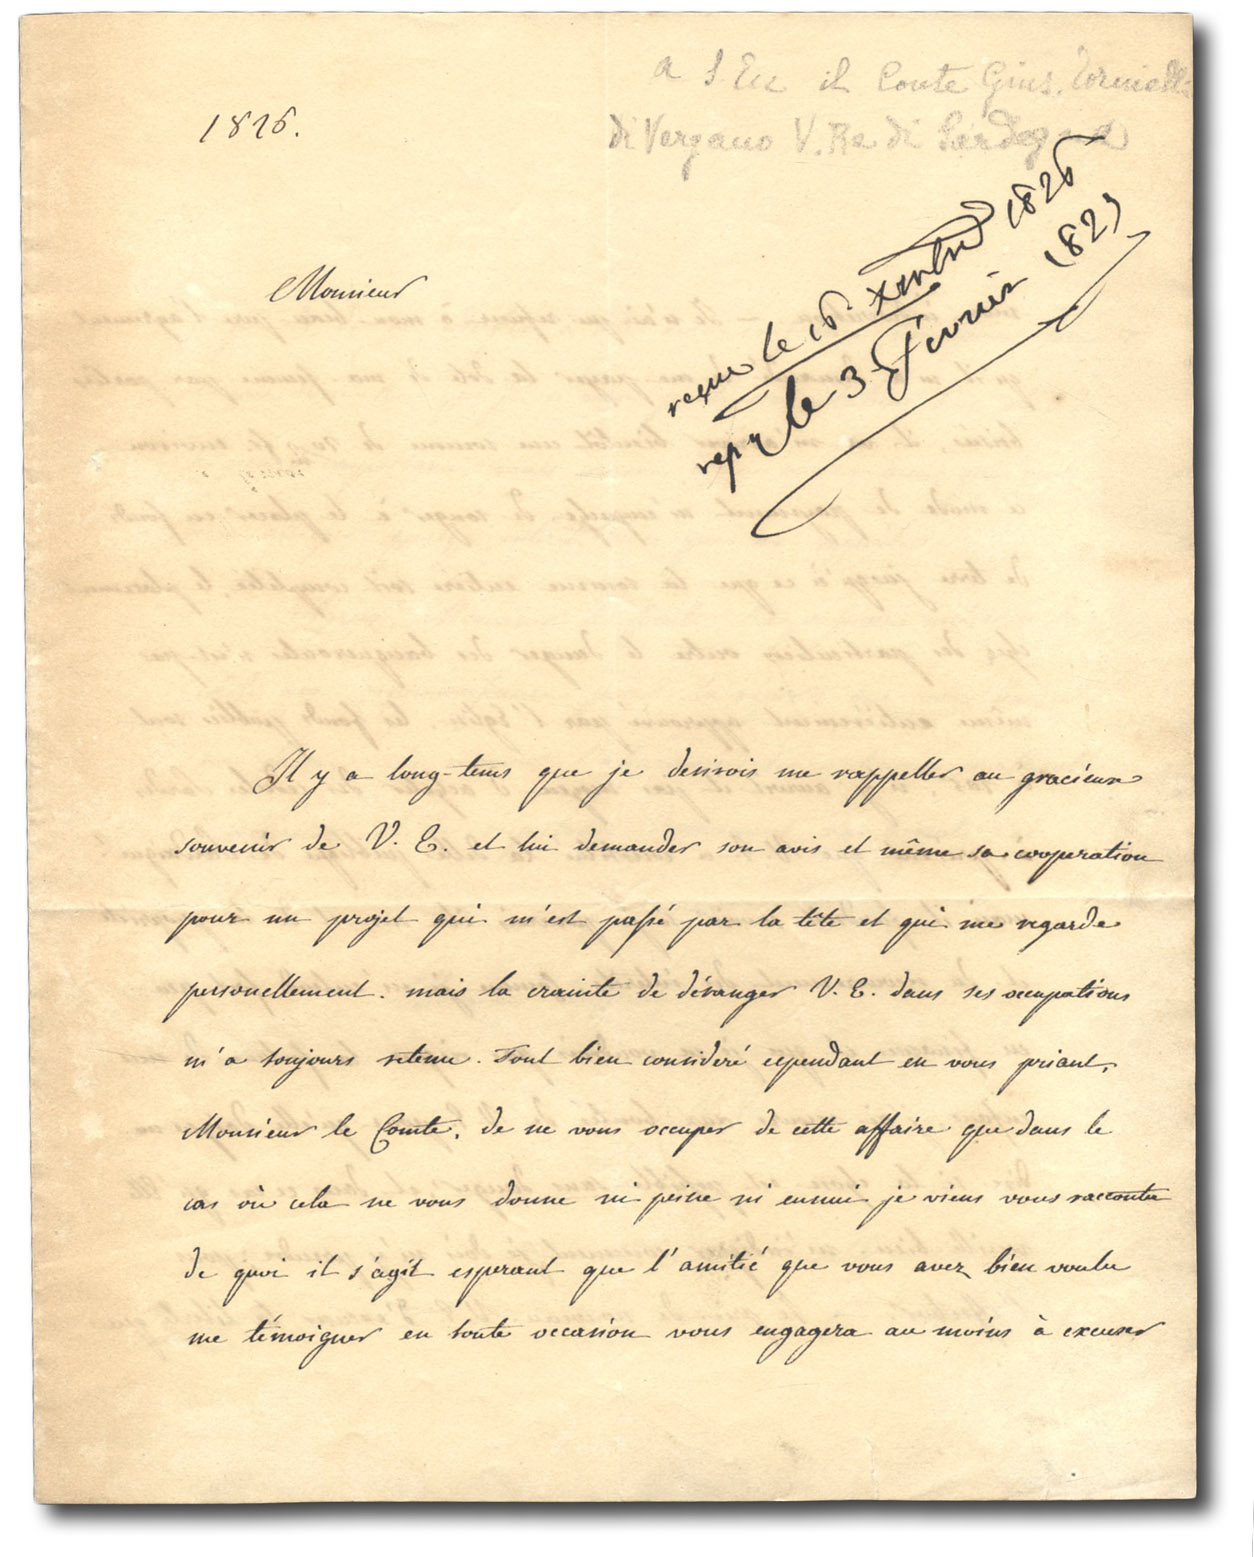 a S. Ecc il Conte Gius. Tornielli
di Vergano V. Re di Sardegna
1826.
reçue le 16 Xmbre 1826
rep. le 3 Février 1827
Monsieur
Il y a long-tems que je desirois me rappeller au gracieux
souvenir de V. E. et lui demander son avis et même sa cooperation
pour un projet qui m'est passé par la tête et qui me regarde
personellement. mais la crainte de déranger V. E. dans ses occupations
m'a toujours retenu. Tout bien consideré cependant en vous priant,
Monsieur le Comte, de ne vous occuper de cette affaire que dans le
cas où cela ne vous donne ni peine ni ennui je viens vous racconter
de quoi il s'agit esperant que l'amitié que vous avez bien voulu
me témoigner en toute occasion vous engagera au moins à excuser